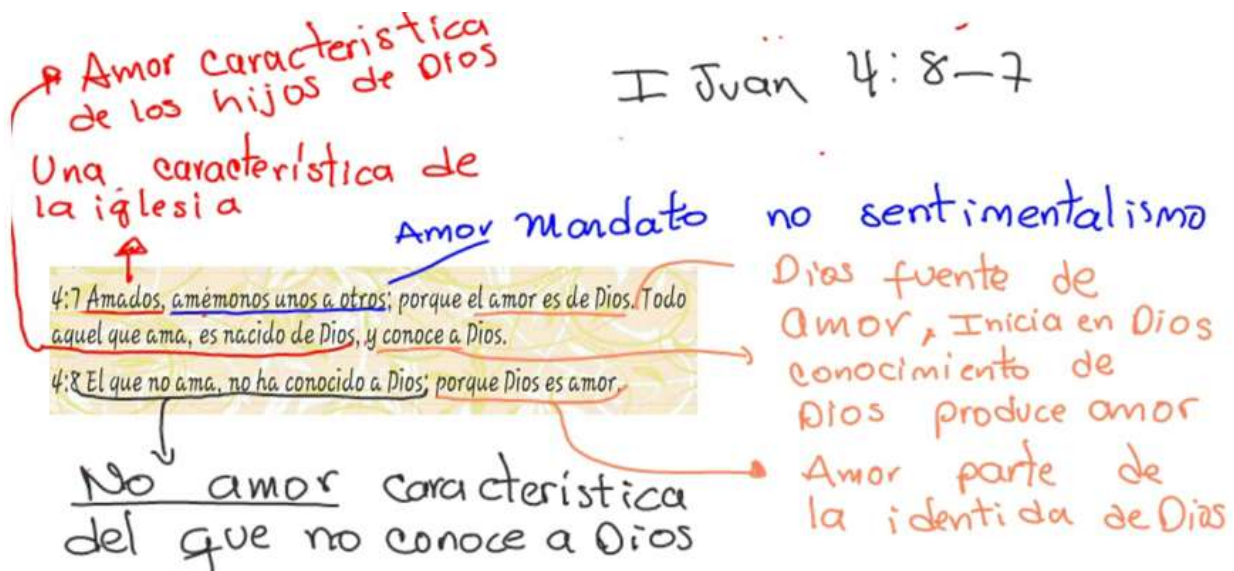 Amor caracteristica
de los hijos de Dios
I Juan 4:8-7
Una característica de
la iglesia
Amor mandato no sentimentalismo
4:7 Amados, amémonos unos a otros; porque el amor es de Dios. Todo
aquel que ama, es nacido de Dios, y conoce a Dios.
4:8 El que no ama, no ha conocido a Dios; porque Dios es amor.
Dios fuente de
amor, Inicia en Dios
conocimiento de
Dios produce amor
Amor parte de
la identida de Dios
No amor característica
del que no conoce a Dios